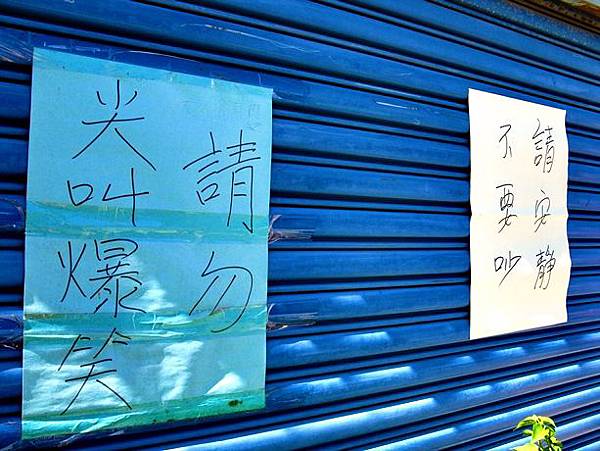 請勿
尖叫爆笑
請安靜
不要吵